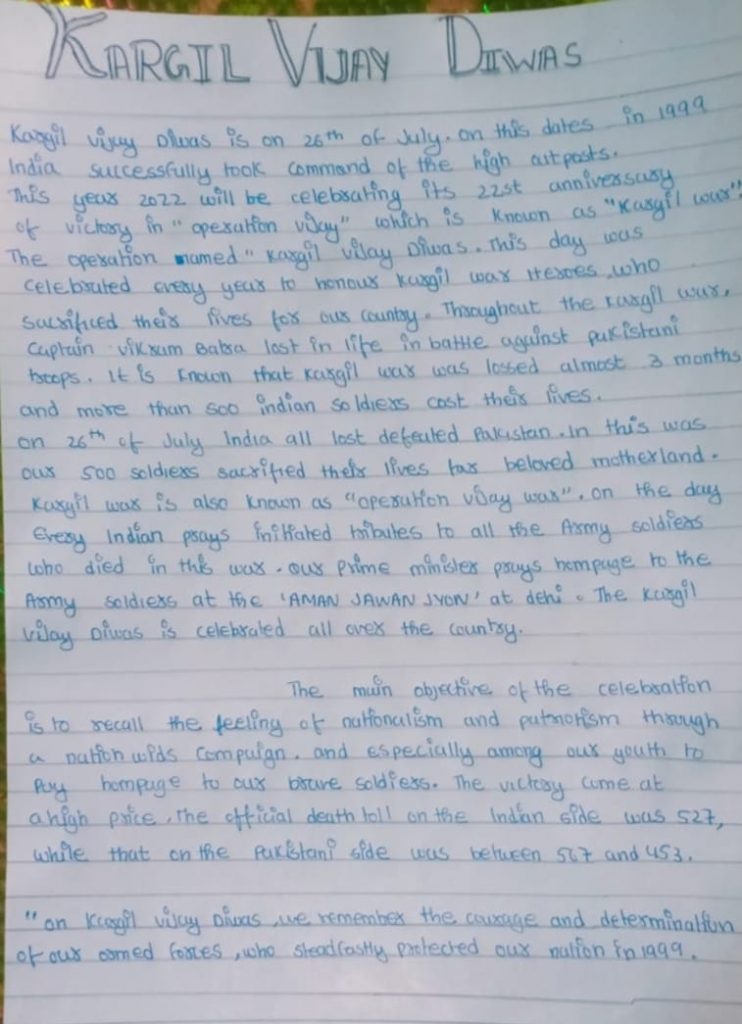 KARGIL VIJAY DIWAS
Kargil vijay Diwas is on 26th of July. on this dates in 1999
India successfully took command of the high outposts.
This year 2022 will be celebrating its 22st anniversary
of victory in "operation vijay" which is known as "Kargil war"
The operation named "Kargil vijay Diwas. This day was
celebrated every year to honour Kargil war Heroes, who
sacrificed their lives for our country. Throughout the kargil war,
Captain vikram Batra lost in life in battle against pakistani
troops. It is known that kargil war was lossed almost 3 months
and more than 500 indian soldiers cost their lives.
on 26th of July India all lost defeated Pakistan. In this was
our 500 soldiers sacrified their lives for beloved motherland.
Kargil war is also known as "operation vijay war". on the day
Every Indian prays initiated tributes to all the Army soldiers
who died in this war. our prime minister prays hompage to the
Army soldiers at the 'AMAN JAWAN JYON' at dehi. The Kargil
vijay Diwas is celebrated all over the country.
The main objective of the celebration
is to recall the feeling of nationalism and patriotism through
a nation wids compaign. and especially among our youth to
Pay hompage to our brave soldiers. The victory came at
a high price, the official death toll on the Indian side was 527,
while that on the Pakistani side was between 567 and 453.
"on Kargil vijay Diwas, we remember the courage and determination
of our armed forces, who steadfastly protected our nation in 1999.